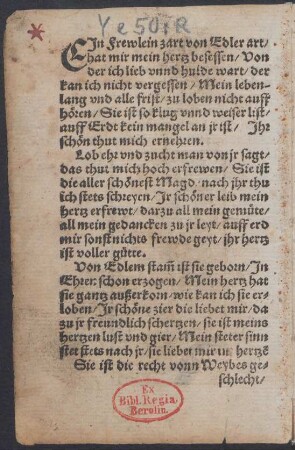 Ye 50:R
EIn Frewlein zart von Edler art/
hat mir mein hertz besessen/ Von
der ich lieb vnnd hulde wart/ der
kan ich nicht vergessen/ Mein leben-
lang vnd alle frist/ zu loben nicht auff
hören/ Sie ist so klug vnnd weiser list/
auff Erdt kein mangel an jr ist/ Ihr
schön thut mich ernehren.
Lob ehr vnd zucht man von jr sagt/
das thut mich hoch erfrewen/ Sie ist
die aller schönest Magd/ nach jhr thu
ich stets schreyen/ Jr schöner leib mein
hertz erfrewt/ darzu all mein gemüte/
all mein gedancken zu jr leyt/ auff erd
mir sonst nichts frewde geyt/ jhr hertz
ist voller gütte.
Von Edlem stam̃ ist sie geborn/ In
Ehren schon erzogen/ Mein hertz hat
sie gantz außerkorn/ wie kan ich sie er-
loben/ Jr schöne zier die liebet mir/ da
zu jr freundlich schertzen/ sie ist meins
hertzen lust vnd gier/ Mein steter sinn
stet stets nach jr/ sie liebet mir im hertzẽ
Sie ist die recht vonn Weybes ge-
schlecht/
Ex
Bibl. Regia
Berolin.